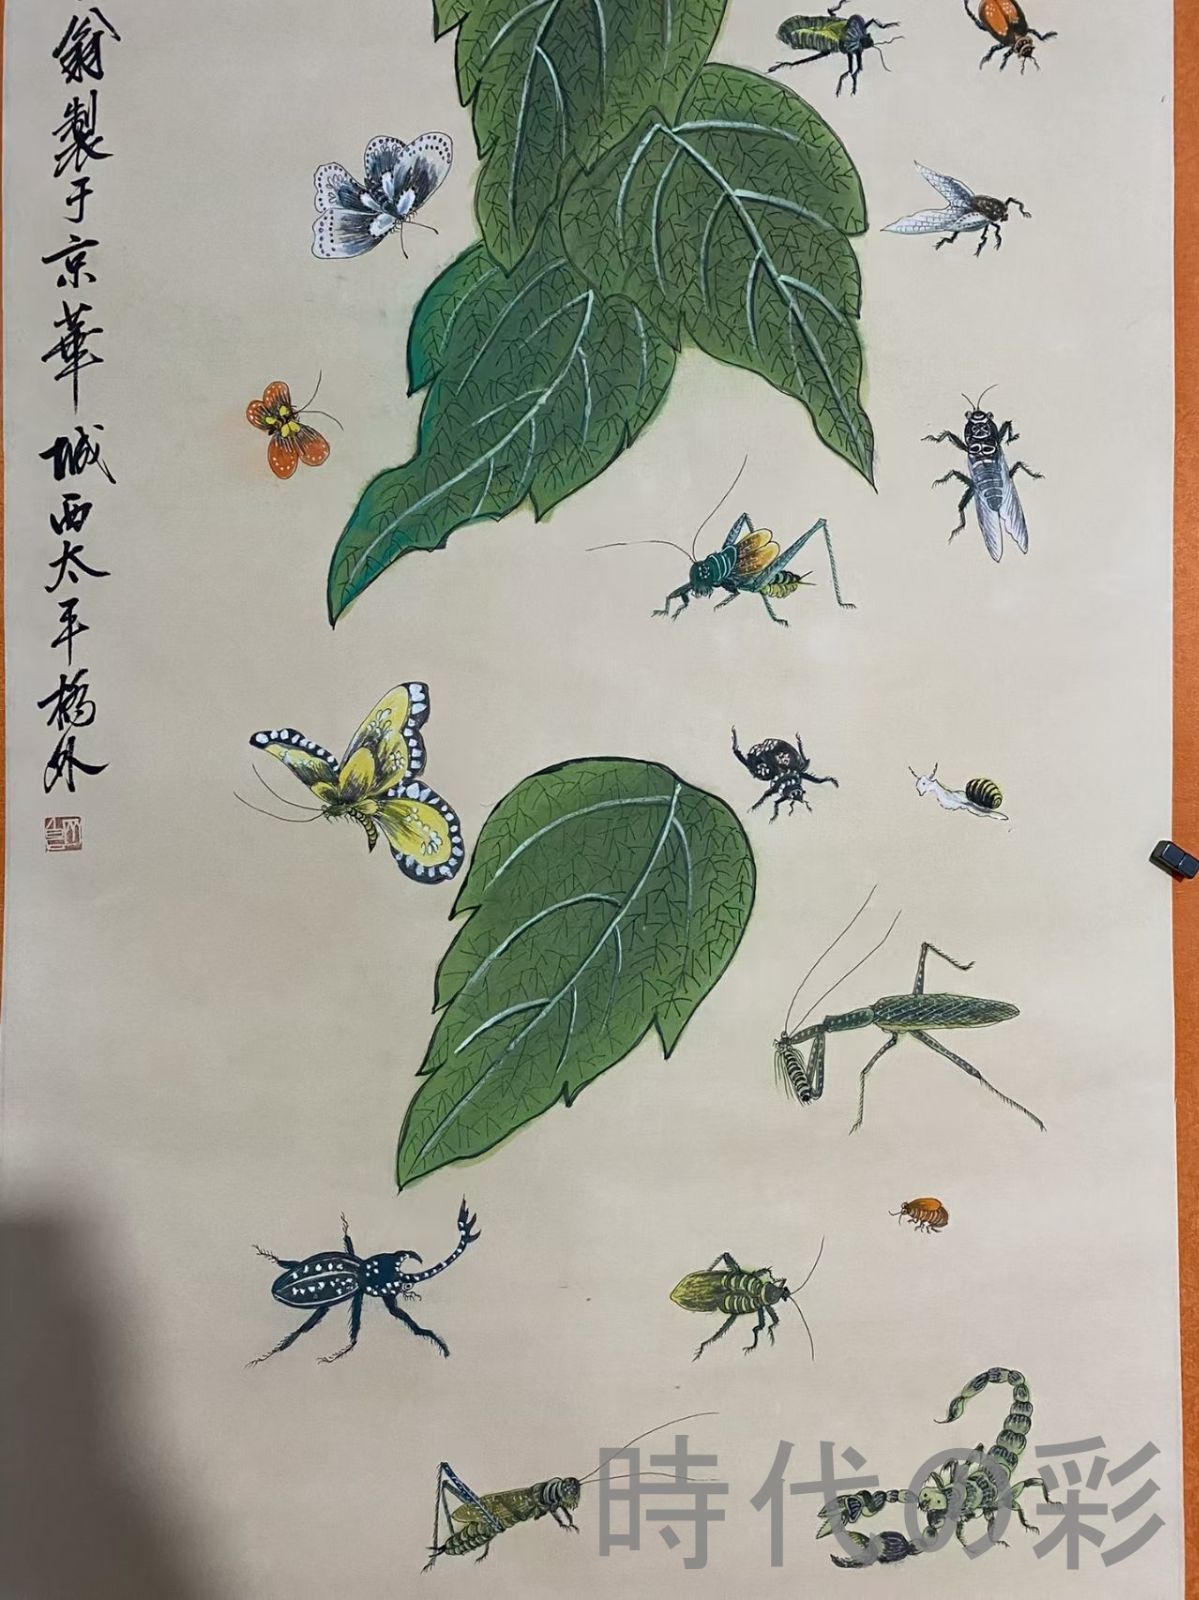 翁製于京華城西太平橋外
時代の彩